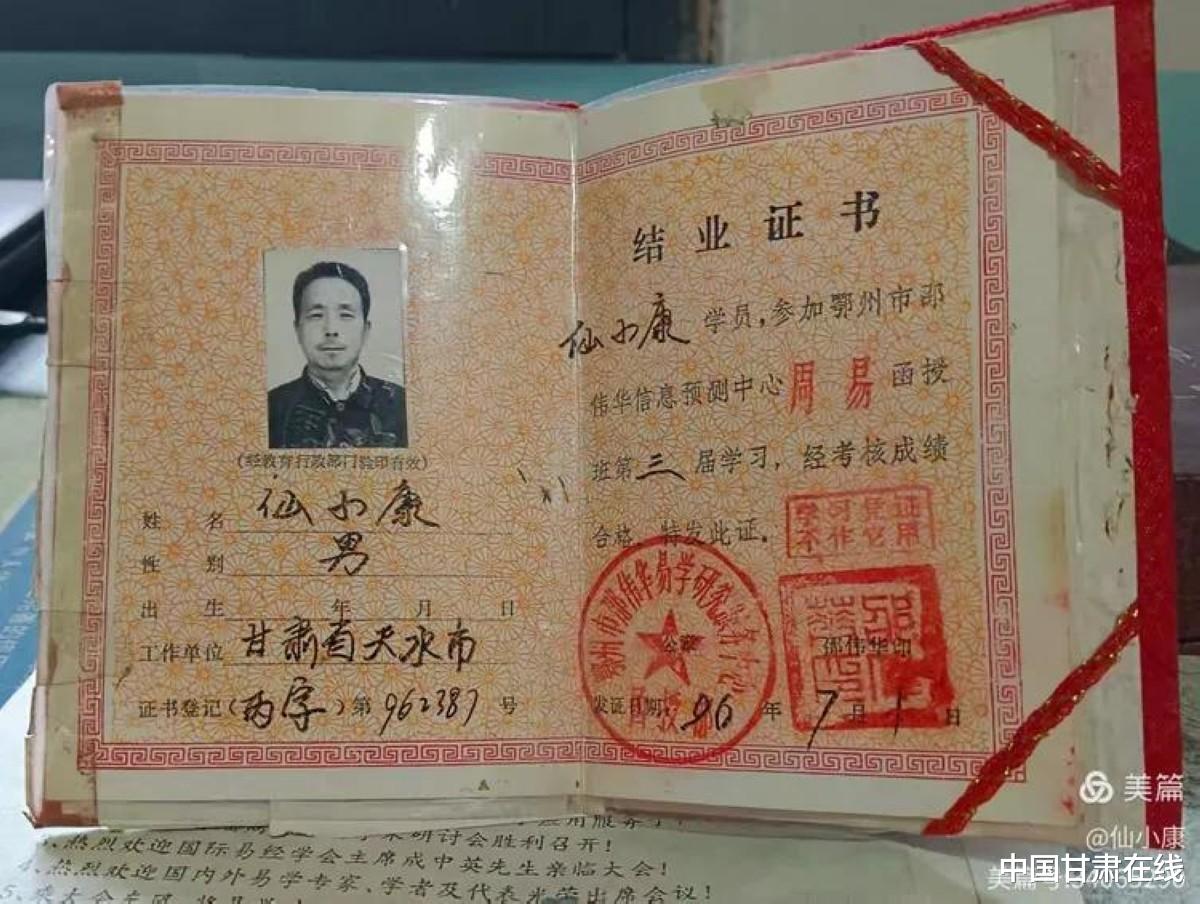 (经教育行政部门验印有效)
姓 名 仙小康
性 别 男
出 生 年 月 日
工作单位 甘肃省天水市
证书登记(丙字)第962387号
结业证书
仙小康 学员,参加鄂州市邵
伟华信息预测中心周易函授
班第三届学习,经考核成绩
合格。特发此证。
学习凭证
不作它用
鄂州市邵伟华易学研究服务中心
公章
邵伟华印
发证日期:96年7月1日
学术研讨会胜利召开!
4、热烈欢迎国际易经学会主席成中英先生亲临大会!
热烈欢迎国内外易学专家、学者及代表光荣出席会议!
5、
美篇
@仙小康
中国甘肃在线